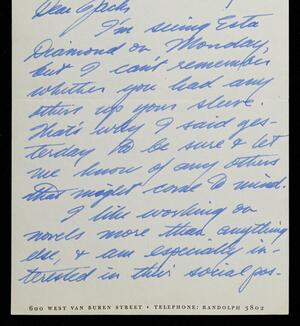 Dear Jack:
I'm seeing Esta
Diamond on Monday,
but I can't remember
whether you had any
others up your sleeve.
That's why I said yes-
terday to be sure & let
me know of any others
that might come to mind.
I like working on
novels more than anything
else, & am especially in-
terested in their social pos-
600 WEST VAN BUREN STREET • TELEPHONE: RANDOLPH 3802